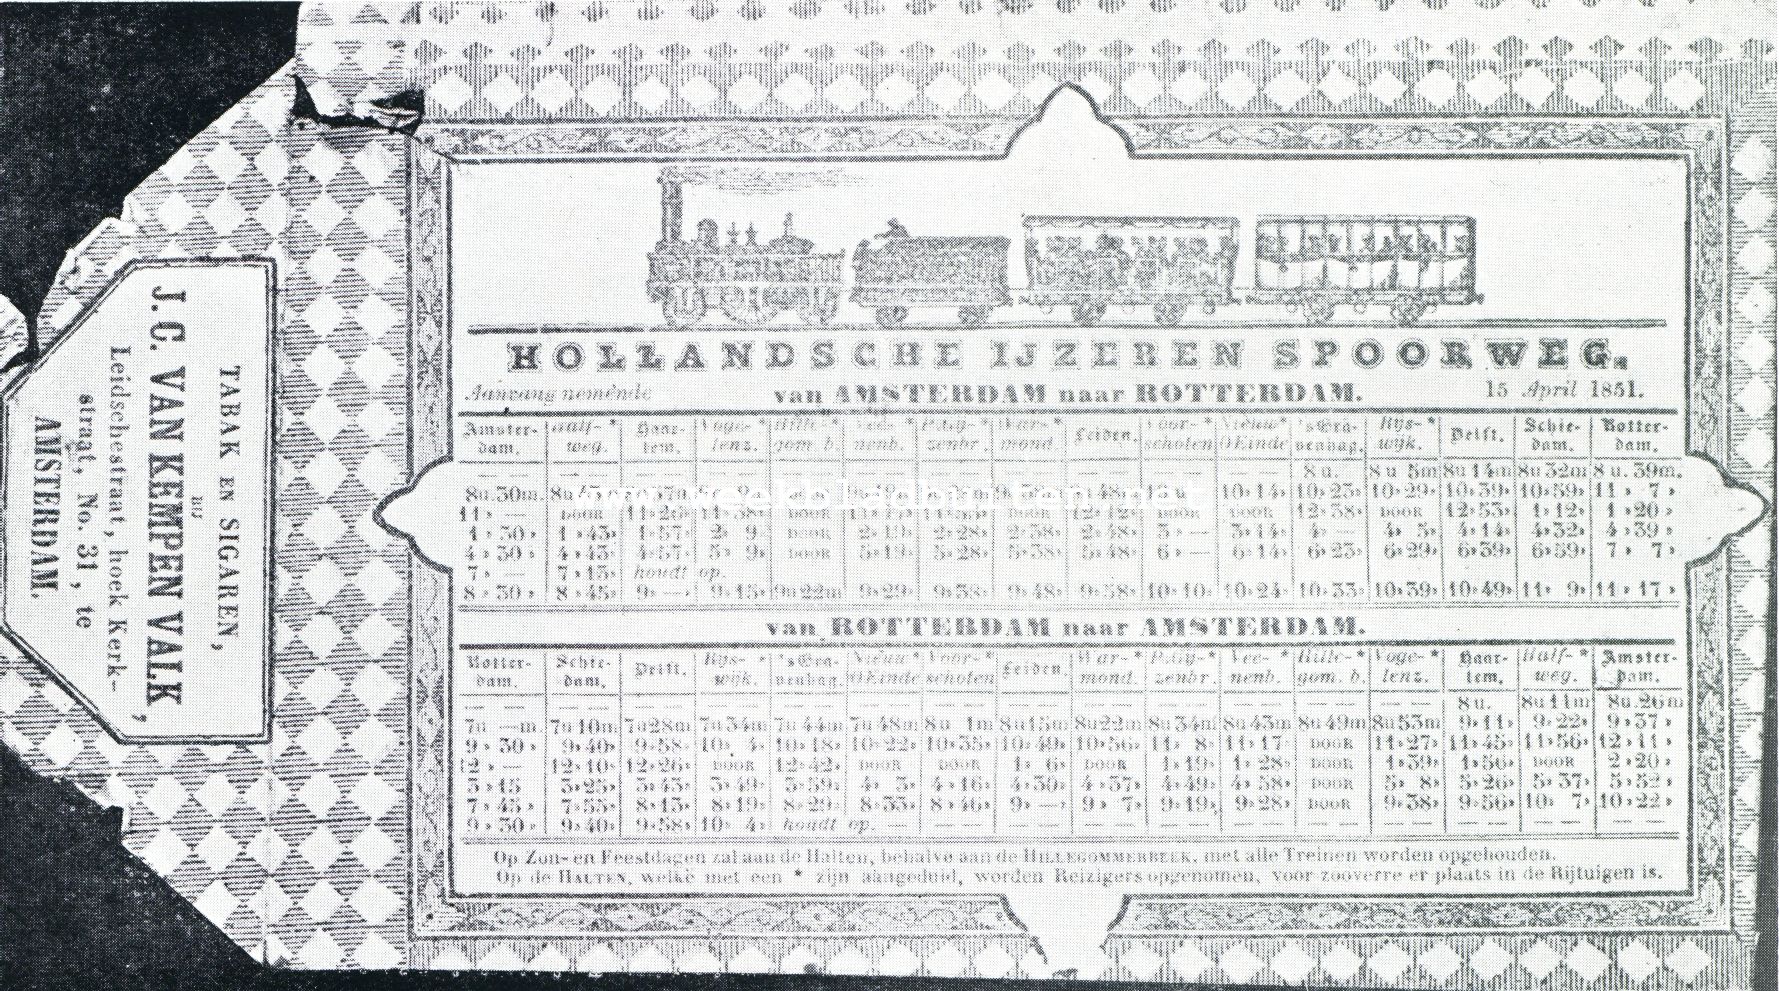 TABAK EN SIGAREN,
BIJ
J.C. VAN KEMPEN VALK,
Leidschestraat, hoek Kerk-
straat, No. 31, te
AMSTERDAM.
HOLLANDSCHE IJZEREN SPOORWEG.
Aanvang nemende van AMSTERDAM naar ROTTERDAM. 15 April 1851.
Amster- Half-* Haar- Voge-* Hille-* Vee-* P.Gy-* War-* Leiden. Voor-* Nieuw* 'sGra- Rys-* Delft. Schie- Rotter-
dam. weg. lem. lenz. gom.b. nenb. zenbr. mond. schoten OEinde venhag. wijk. dam. dam.
— — — — — — — — — — — 8u. 8u 5m 8u 14m 8u 32m 8u. 39m.
8u.30m. 10»14» 10»23» 10»29» 10»39» 10»59» 11» 7»
11» — DOOR DOOR DOOR 12»38» DOOR 12»53» 1»12» 1»20»
1»30» 1»43» 1»57» 2» 9» DOOR 2»19» 2»28» 2»38» 2»48» 3»— 3»14» 4»— 4» 5» 4»14» 4»32» 4»39»
4»30» 4»43» 4»57» 5» 9» DOOR 5»19» 5»28» 5»38» 5»48» 6»— 6»14» 6»23» 6»29» 6»39» 6»59» 7» 7»
7»— 7»15» houdt op.
8»30» 8»45» 9»— 9»15» 9u22m 9»29» 9»38» 9»48» 9»58» 10»10» 10»24» 10»33» 10»39» 10»49» 11» 9» 11»17»
van ROTTERDAM naar AMSTERDAM.
Rotter- Schie- Delft. Rys-* 'sGra- Nieuw* Voor-* Leiden. War-* P.Gy-* Vee-* Hille-* Voge-* Haar- Half-* Amster-
dam. dam. wijk. venhag. OEinde schoten mond. zenbr. nenb. gom.b. lenz. lem. weg. dam.
— — — — — — — — — — — — — 8u. 8u11m 8u.26m
7u —m. 7u10m. 7u28m 7u34m 7u44m 7u48m 8u 1m 8u15m 8u22m 8u34m 8u43m 8u49m 8u53m 9»11» 9»22» 9»37»
9»30» 9»40» 9»58» 10» 4» 10»18» 10»22» 10»35» 10»49» 10»56» 11» 8» 11»17» DOOR 11»27» 11»45» 11»56» 12»11»
12»— 12»10» 12»26» DOOR 12»42» DOOR DOOR 1» 6» DOOR 1»19» 1»28» DOOR 1»39» 1»56» DOOR 2»20»
3»15 3»25» 3»43» 3»49» 3»59» 4» 3» 4»16» 4»30» 4»37» 4»49» 4»58» DOOR 5» 8» 5»26» 5»37» 5»52»
7»45» 7»55» 8»13» 8»19» 8»29» 8»33» 8»46» 9»— 9» 7» 9»19» 9»28» DOOR 9»38» 9»56» 10» 7» 10»22»
9»30» 9»40» 9»58» 10» 4» houdt op. — — — — — — — — — —
Op Zon- en Feestdagen zal aan de Halten, behalve aan de HILLEGOMMERBEEK, met alle Treinen worden opgehouden.
Op de HALTEN, welke met een * zijn aangeduid, worden Reizigers opgenomen, voor zooverre er plaats in de Rijtuigen is.